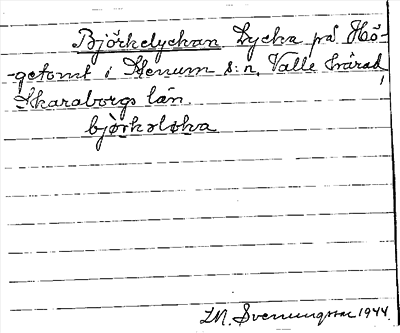 Björkelyckan. Lycka på Hö-
-getomt i Stenum s:n, Valle härad,
Skaraborgs län.
bjørkəløka
I.M. Svenungsson 1944